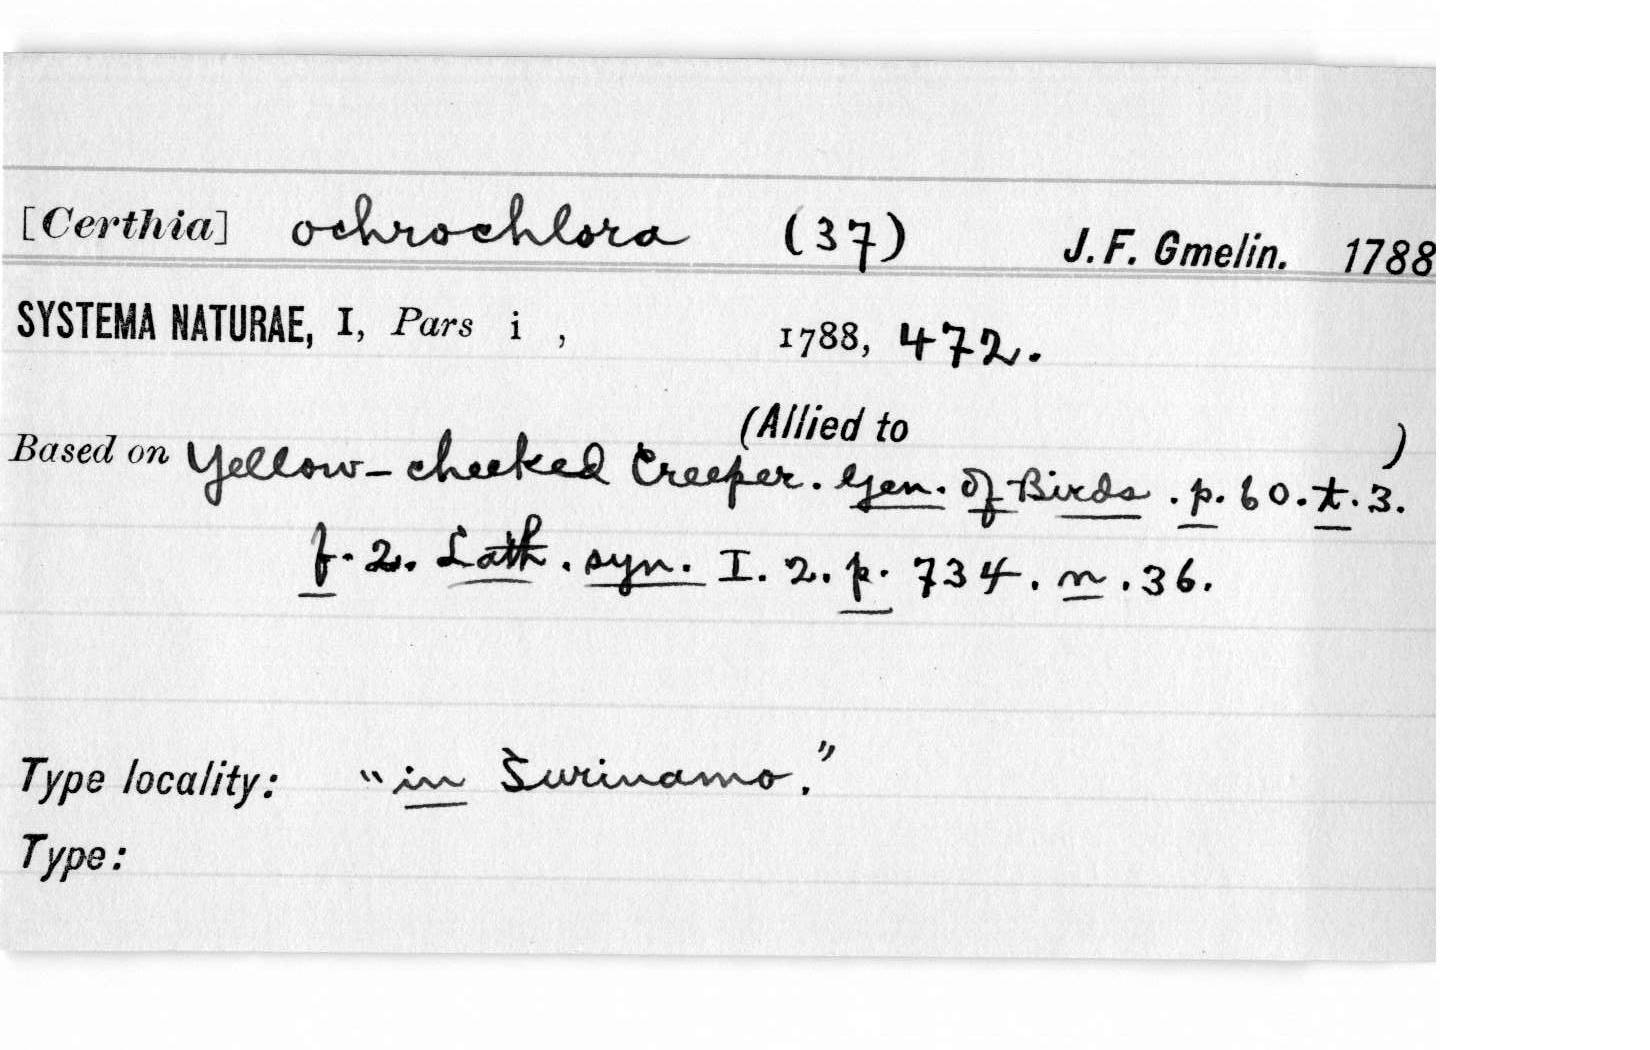 [Certhia] ochrochlora (37) J. F. Gmelin. 1788
SYSTEMA NATURAE, I, Pars i , 1788, 472.
(Allied to )
Based on Yellow-cheeked Creeper. Gen. of Birds. p. 60. t. 3.
f. 2. Lath. syn. I. 2. p. 734. n. 36.
Type locality: "in Surinamo."
Type: